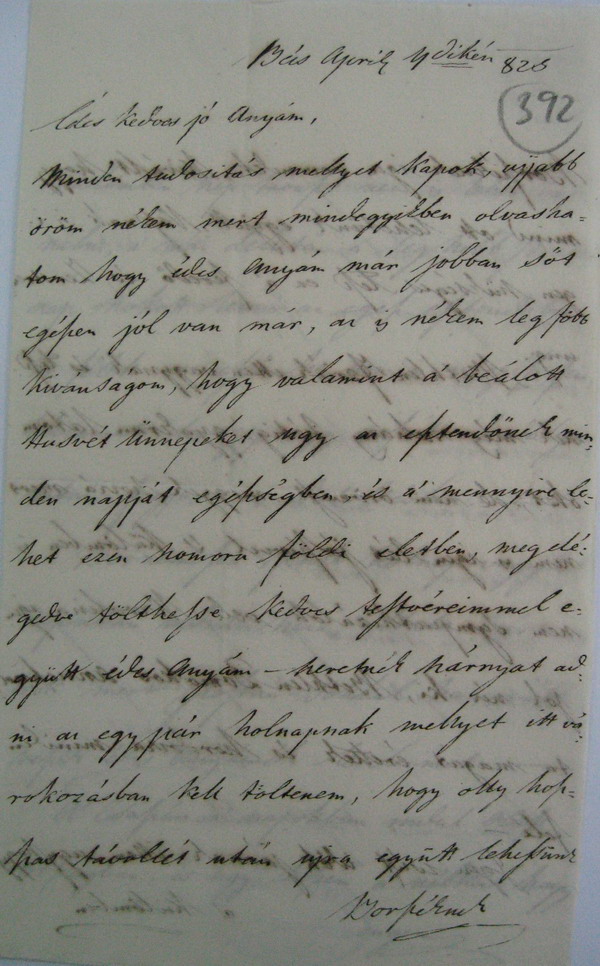 Bés April 4dikén 828
392
Édes Kedves jó Anyám,
Minden tudositás mellyet kapok, ujjabb
öröm nékem mert mindegyikben olvasha-
tom hogy édes Anyám már jobban söt
egéßen jól van már, az is nékem leg föbb
Kivánságom, hogy valamint á beálott
Husvét Ünnepeket ugy az eßtendőnek min-
den napját egéßségben, és á mennyire le-
het ezen homoru földi eletben, meg elé-
gedve tölthesse kedves testvéreimmel e-
gyütt édes Anyám – heretnék hárnyat ad-
ni az egy pár holnapnak mellyet itt vá-
rokozásban kell töltenem, hogy olly hoß-
ßas távollét után ujra együtt lehessünk